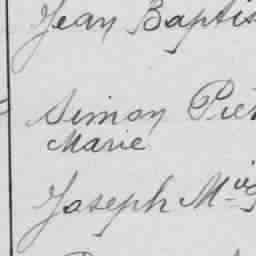 Jean Baptis
Simon Pier
Marie
Joseph M